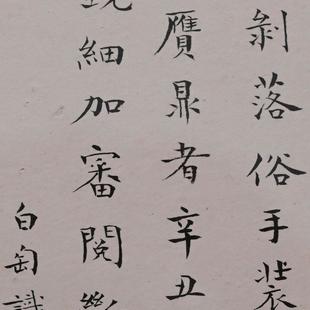 剥落俗手裝
贋鼎者辛丑
細加審閱
白匋識